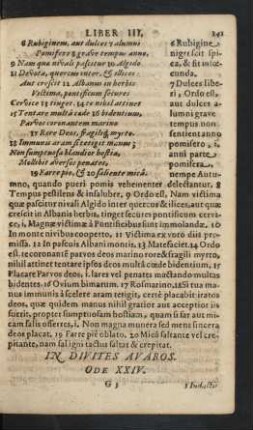 LIBER III. 141
6 Rubiginem, aut dulces 7 alumni
Pomifero 8 grave tempus anno.
9 Nam quæ nivali pascitur 10 Algido
11 Devota, quercus inter, & ilices
Aut crescit 12 Albanis in herbis
Victima, pontificum secures
Cervice 13 tinget. 14 te nihil attinet
15 Tentare multâ cæde 16 bidentium,
Parvos coronantem marino
17 Rore Deos, fragiliq́ myrto.
18 Immunis aram si tetigit manus;
Non sumptuosa blandior hostia,
Mollibit aversos penates,
19 Farre pio, & 20 saliente micâ.
6 Rubigine
nigrescit spi-
ca, & fit infœ-
cunda.
7 Dulces libe-
ri, Ordo est,
aut dulces a-
lumni grave
tempus non
sentient anno
pomifero, i.
anni parte
pomifera.
nempe Autu-
mno, quando pueri pomis vehementer delectantur. 8
Tempus pestilens & insalubre. 9 Ordo est, Nam victima
quæ pascitur nivali Algido inter quercos & ilices, aut quæ
crescit in Albanis herbis, tinget secures pontificum cervi-
ce, i. Magnæ victimæ à Pontificibus sunt immolandæ. 10
In monte nivibus cooperto. 11 Victima ex voto diis pro-
missa. 12 In pascuis Albani montis. 13 Matefaciet. 14 Ordo
est, te coronantē parvos deos marino rore & fragili myrto,
nihil attinet tentare ipsos deos multâ cæde bidentium, i.
Placare Parvos deos, i. lares vel penates mactando multas
bidentes. 16 Ovium bimarum. 17 Rosmarino. 18 Si tua ma-
nus immunis à scelere aram tetigit, certè placabit iratos
deos, quæ quidem manus nihil gratior aut acceptior is
fuerit, propter sumptuosam hostiam, quam si far aut mi-
cam salis offerres, i. Non magna munera sed mens sincera
deos placat. 19 Farre piè oblato. 20 Micâ saltante vel cre-
pitante, nam sal igni tactus saltat & crepitat.
IN DIVITES AVAROS.
ODE XXIV.
G 3